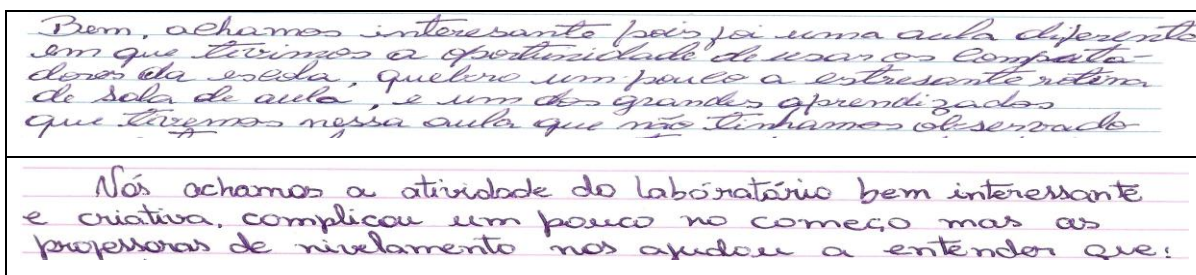 Bem, achamos interesante pois foi uma aula diferente
em que tivimos a oportunidade de usar os computa-
dores da escola, quebro um pouco a estresante rotina
de sala de aula, e um dos grandes aprendizados
que tivemos nessa aula que não tinhamos observado
Nós achamos a atividade do laboratório bem interessante
e criativa, complicou um pouco no começo mas as
professoras de nivelamento nos ajudou a entender que: